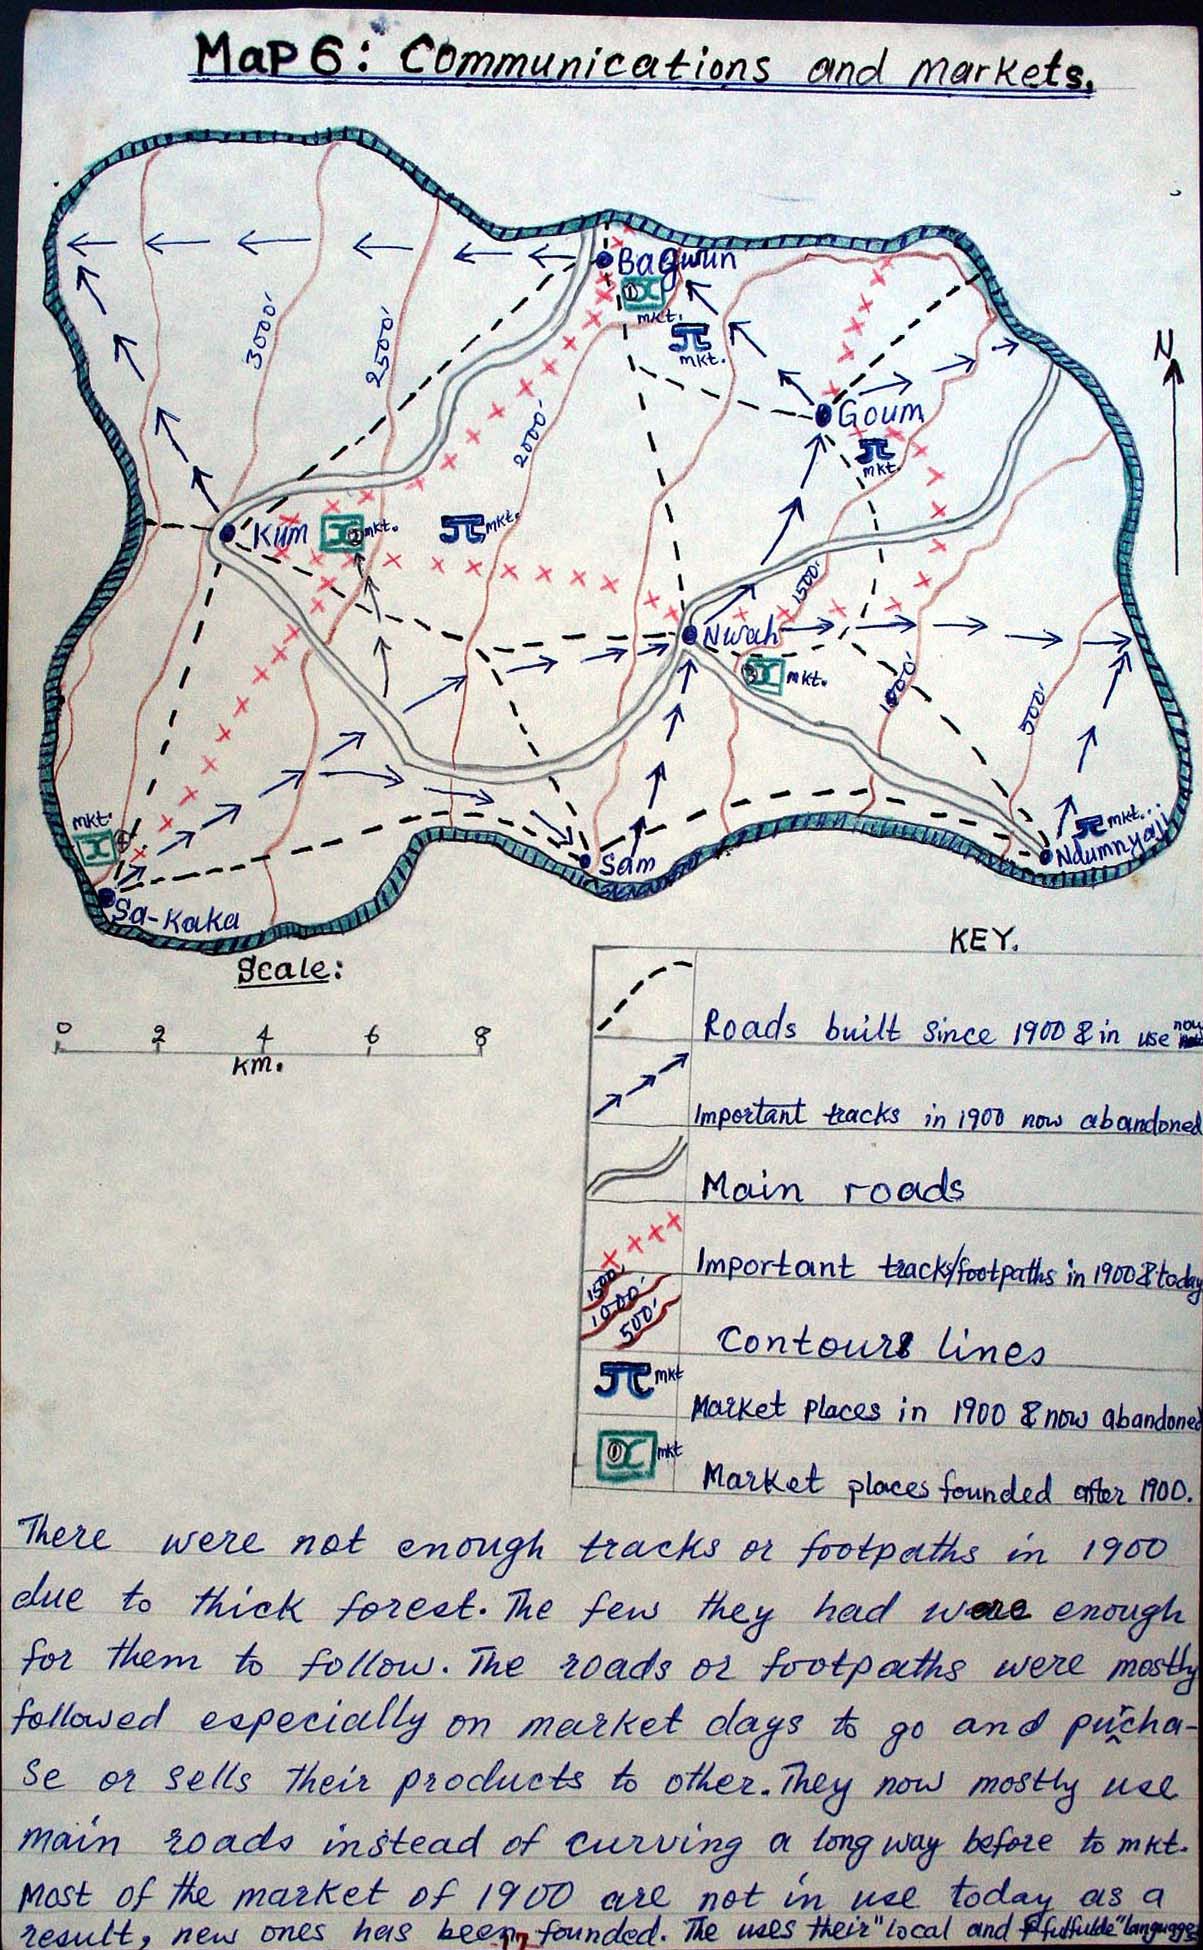 Map 6: Communications and markets.
N
Bagwun
① mkt.
mkt.
3000'
2500'
2000'
Goum
mkt.
Kum
② mkt.
mkt.
1500'
Nwah
③ mkt.
1000'
500'
mkt.
4
Sa-Kaka
Sam
mkt.
Ndumnyaji
Scale:
0 2 4 6 8
km.
KEY.
Roads built since 1900 & in use now
Important tracks in 1900 now abandoned
Main roads
Important tracks/footpaths in 1900 & today
1500'
1000'
500'
Contours lines
mkt
Market places in 1900 & now abandoned
① mkt
Market places founded after 1900.
There were not enough tracks or footpaths in 1900
due to thick forest. The few they had were enough
for them to follow. The roads or footpaths were mostly
followed especially on market days to go and purcha-
se or sells their products to other. They now mostly use
main roads instead of curving a long way before to mkt.
Most of the market of 1900 are not in use today as a
result, new ones has been founded. The uses their "local and fulfulde" languages